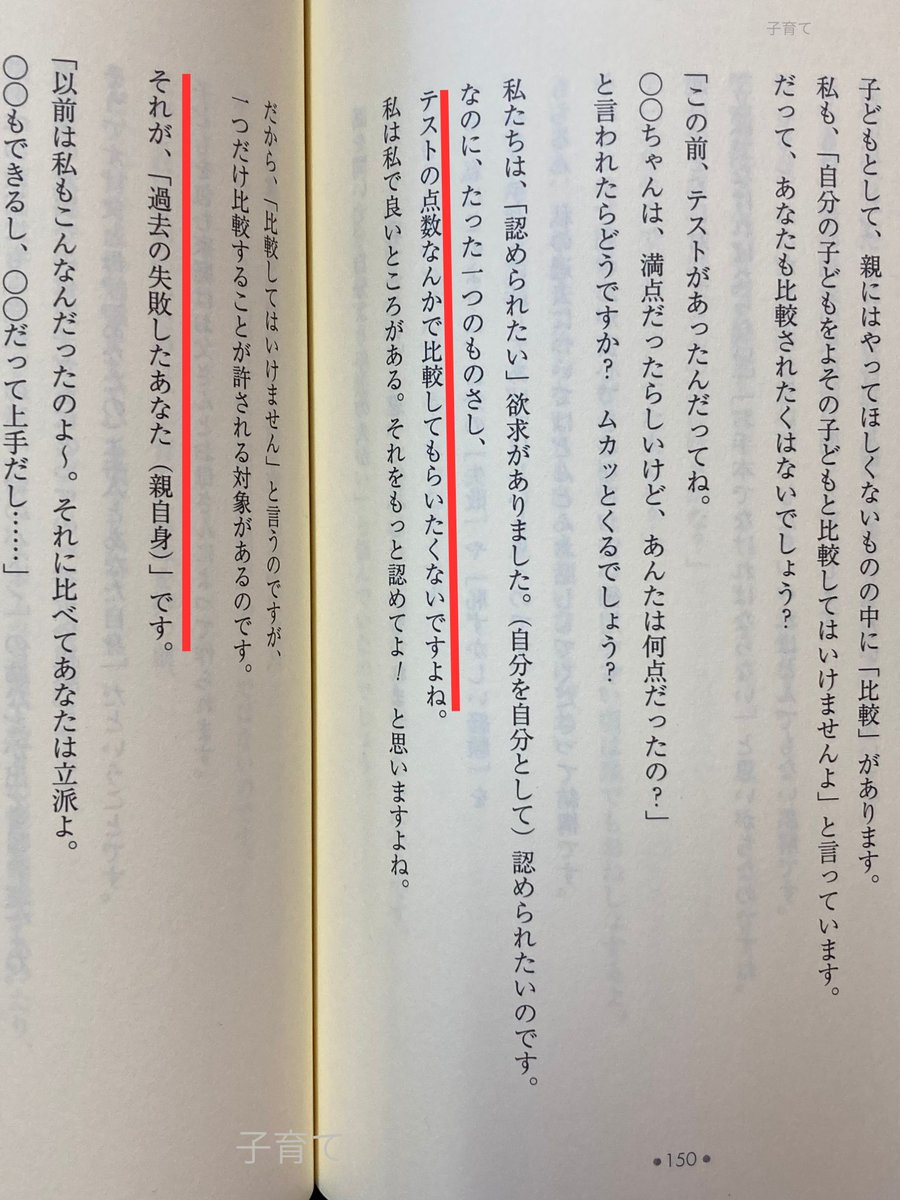 子育て
子どもとして、親にはやってほしくないものの中に「比較」があります。
私も、「自分の子どもをよその子どもと比較してはいけませんよ」と言っています。
だって、あなたも比較されたくはないでしょう？
「この前、テストがあったんだってね。
〇〇ちゃんは、満点だったらしいけど、あんたは何点だったの？」
と言われたらどうですか？ ムカッとくるでしょう？
私たちは、「認められたい」欲求がありました。（自分を自分として）認められたいのです。
なのに、たった一つのものさし、
テストの点数なんかで比較してもらいたくないですよね。
私は私で良いところがある。それをもっと認めてよ！ と思いますよね。
●150●
だから、「比較してはいけません」と言うのですが、
一つだけ比較することが許される対象があるのです。
それが、「過去の失敗したあなた（親自身）」です。
「以前は私もこんなんだったのよ〜。それに比べてあなたは立派よ。
〇〇もできるし、〇〇だって上手だし……」
子育て